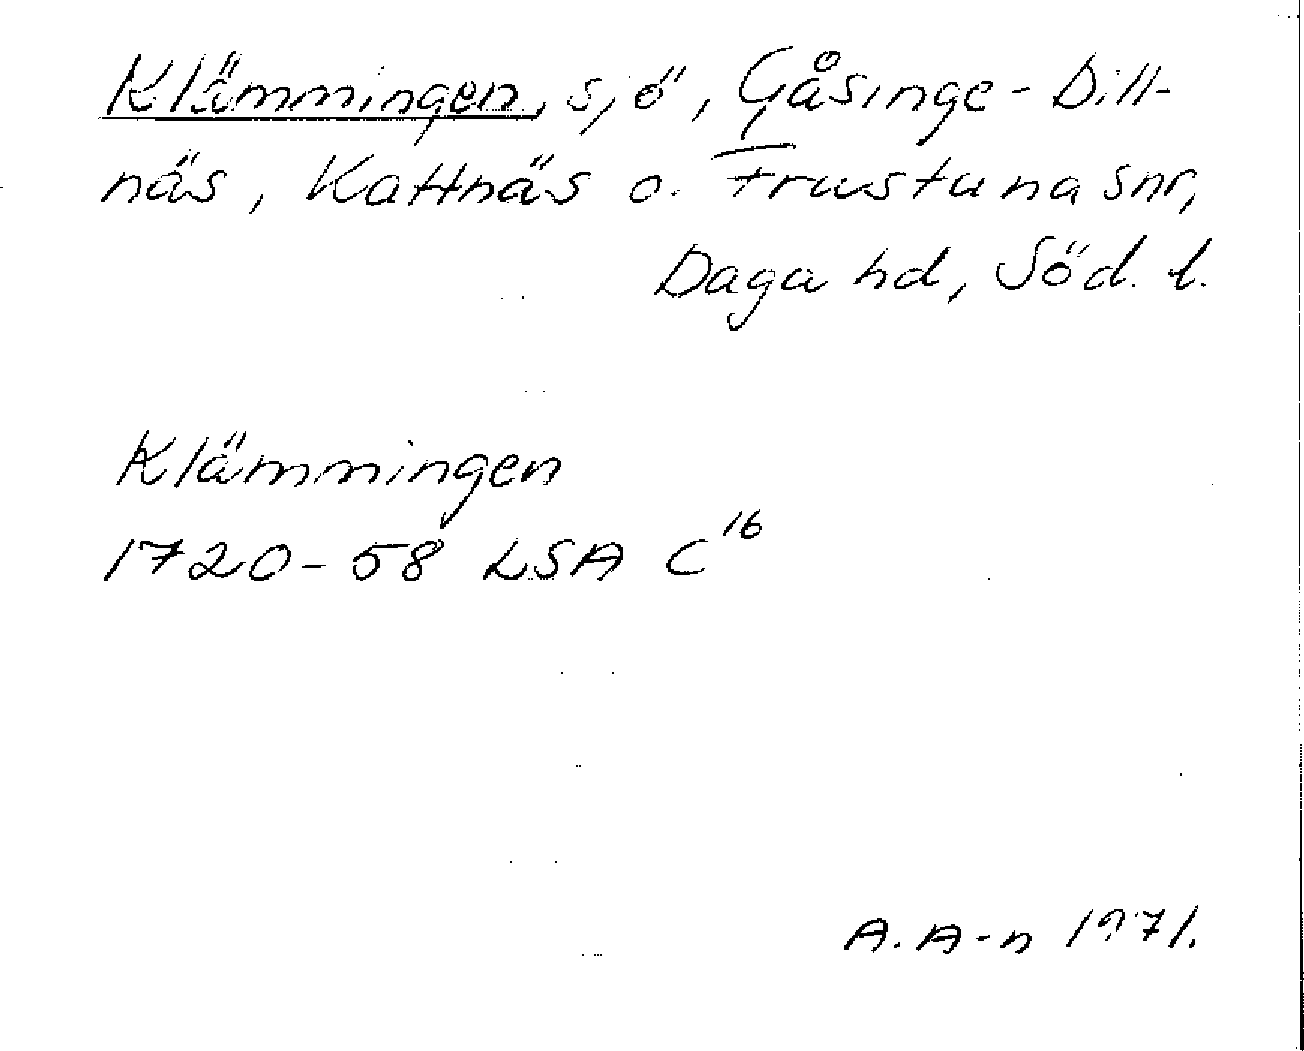 Klämmingen, sjö, Gåsinge-Dill-
näs, Kattnäs o. Frustuna snr,
Daga hd, Söd. l.
Klämmingen
1720-58 LSA C¹⁶
A. A-n 1971.